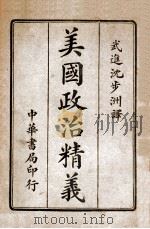 武進沈步洲譯
美國政治精義
中華書局印行
mtoou.info